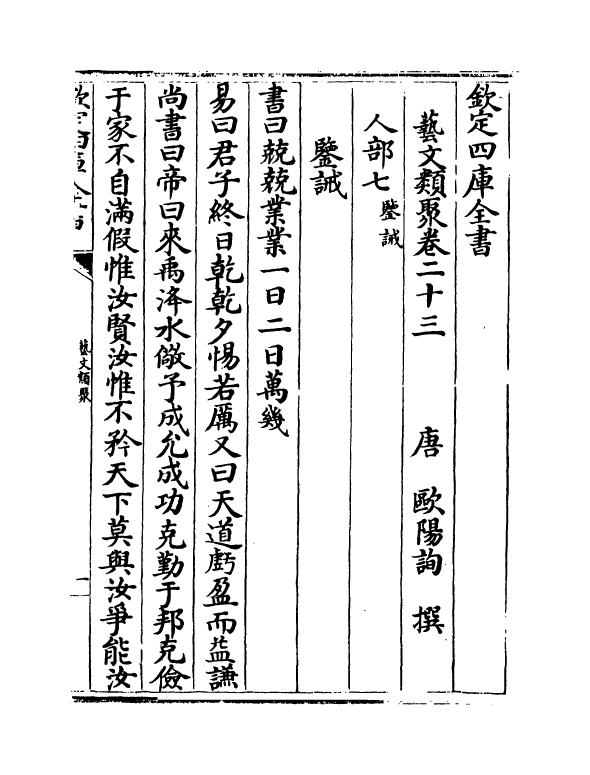 欽定四庫全書
藝文類聚卷二十三
唐 歐陽詢 撰
人部七 鑒誡
鑒誡
書曰兢兢業業一日二日萬幾
易曰君子終日乾乾夕惕若厲又曰天道虧盈而益謙
尚書曰帝曰來禹洚水儆予成允成功克勤于邦克儉
于家不自滿假惟汝賢汝惟不矜天下莫與汝爭能汝
藝文類聚